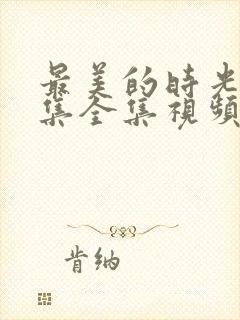 最美的時光
集全集視頻
肯納